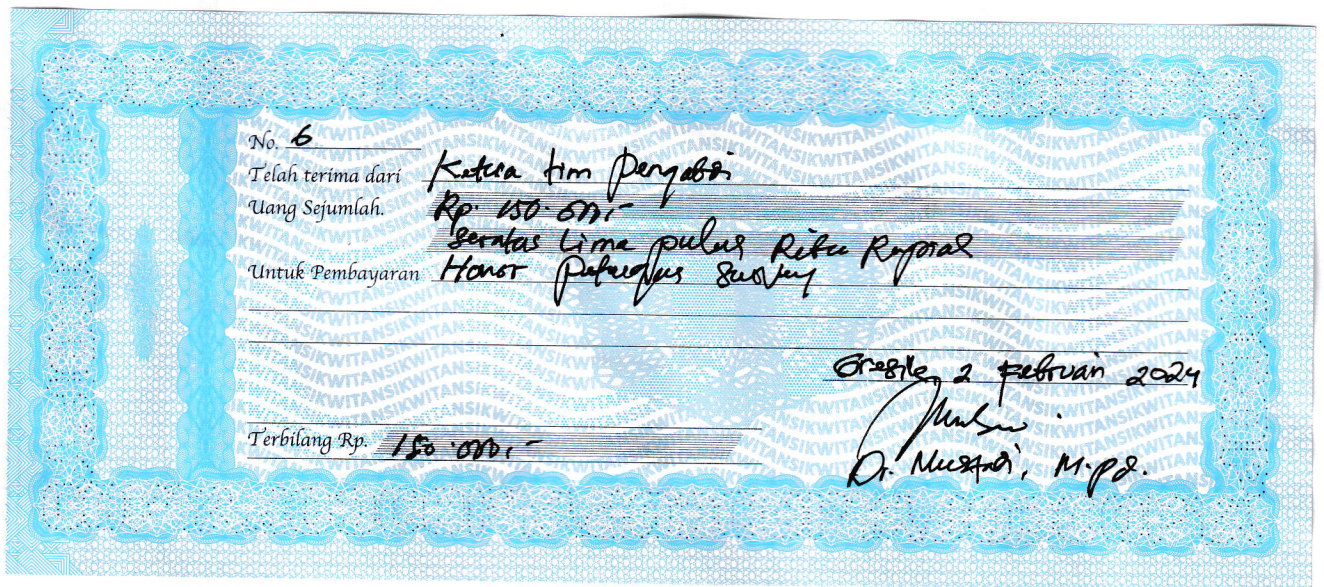 No. 6
Telah terima dari Ketua tim pengabdi
Uang Sejumlah. Rp. 150.000,-
Seratus Lima puluh Ribu Rupiah
Untuk Pembayaran Honor petugas Survey
Gresik, 2 Februari 2024
Terbilang Rp. 150.000,-
Dr. M.Pd.